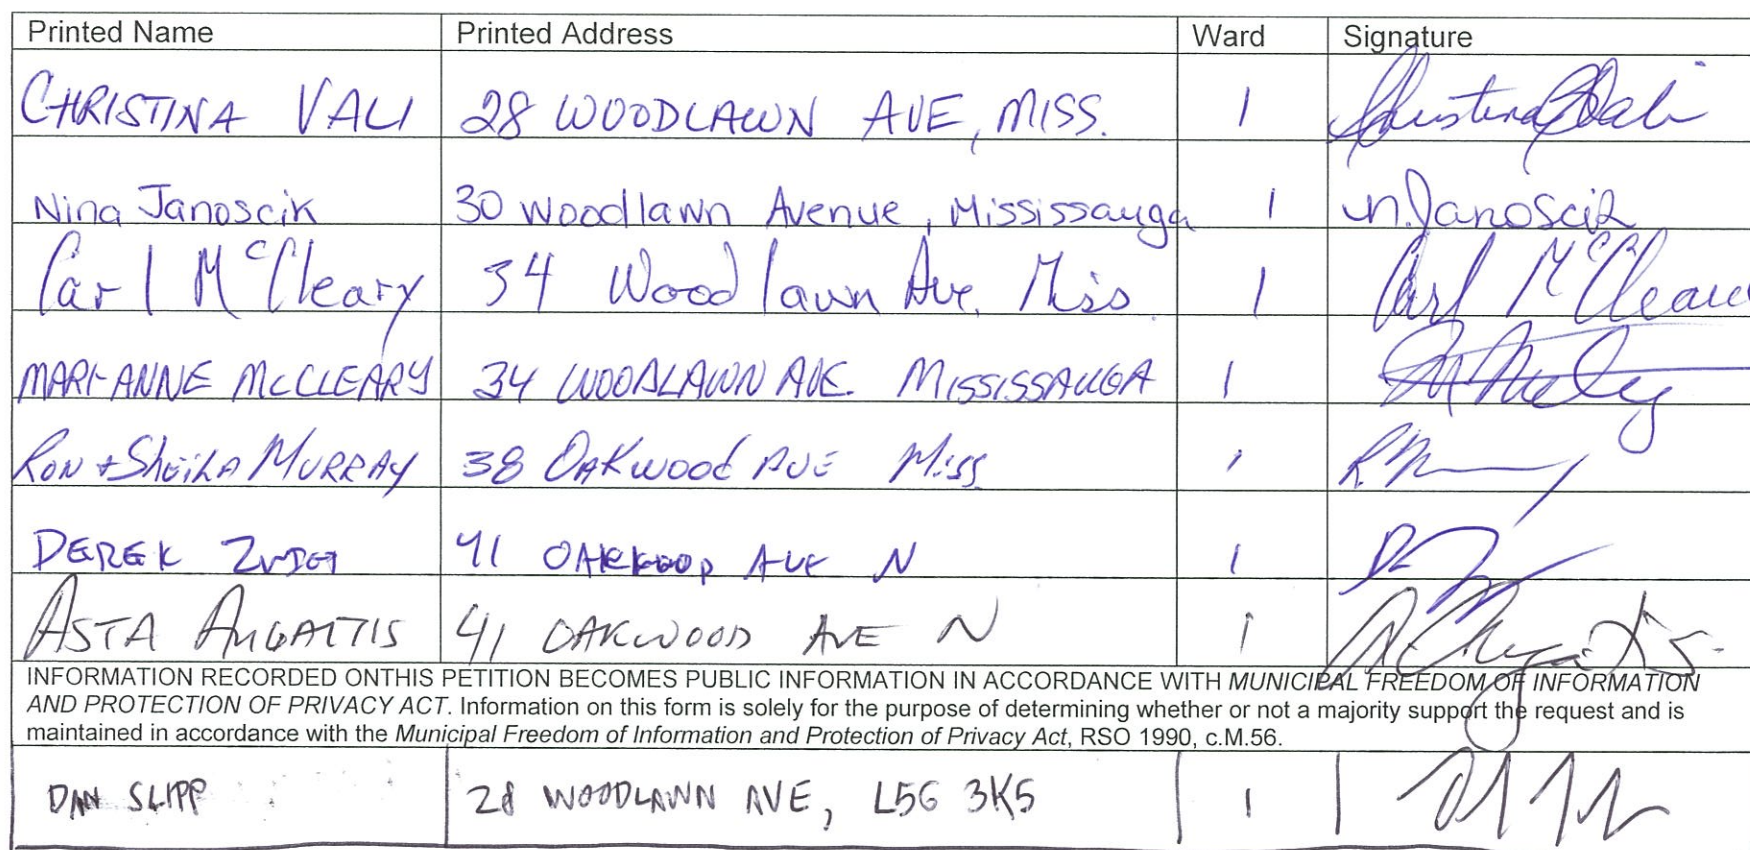 Printed Name Printed Address Ward Signature
CHRISTINA VALI 28 WOODLAWN AVE, MISS. 1 Christina Vali
Nina Janoscik 30 Woodlawn Avenue, Mississauga 1 N. Janoscik
Carl McCleary 34 Woodlawn Ave, Miss. 1 Carl McCleary
MARI-ANNE MCCLEARY 34 WOODLAWN AVE. MISSISSAUGA 1
RON + SHEILA MURRAY 38 OAKWOOD AVE Miss 1
DEREK 41 OAKWOOD AVE N 1
ASTA AUGAITIS 41 OAKWOOD AVE N 1
INFORMATION RECORDED ONTHIS PETITION BECOMES PUBLIC INFORMATION IN ACCORDANCE WITH MUNICIPAL FREEDOM OF INFORMATION
AND PROTECTION OF PRIVACY ACT. Information on this form is solely for the purpose of determining whether or not a majority support the request and is
maintained in accordance with the Municipal Freedom of Information and Protection of Privacy Act, RSO 1990, c.M.56.
DAN SLIPP 28 WOODLAWN AVE, L5G 3K5 1